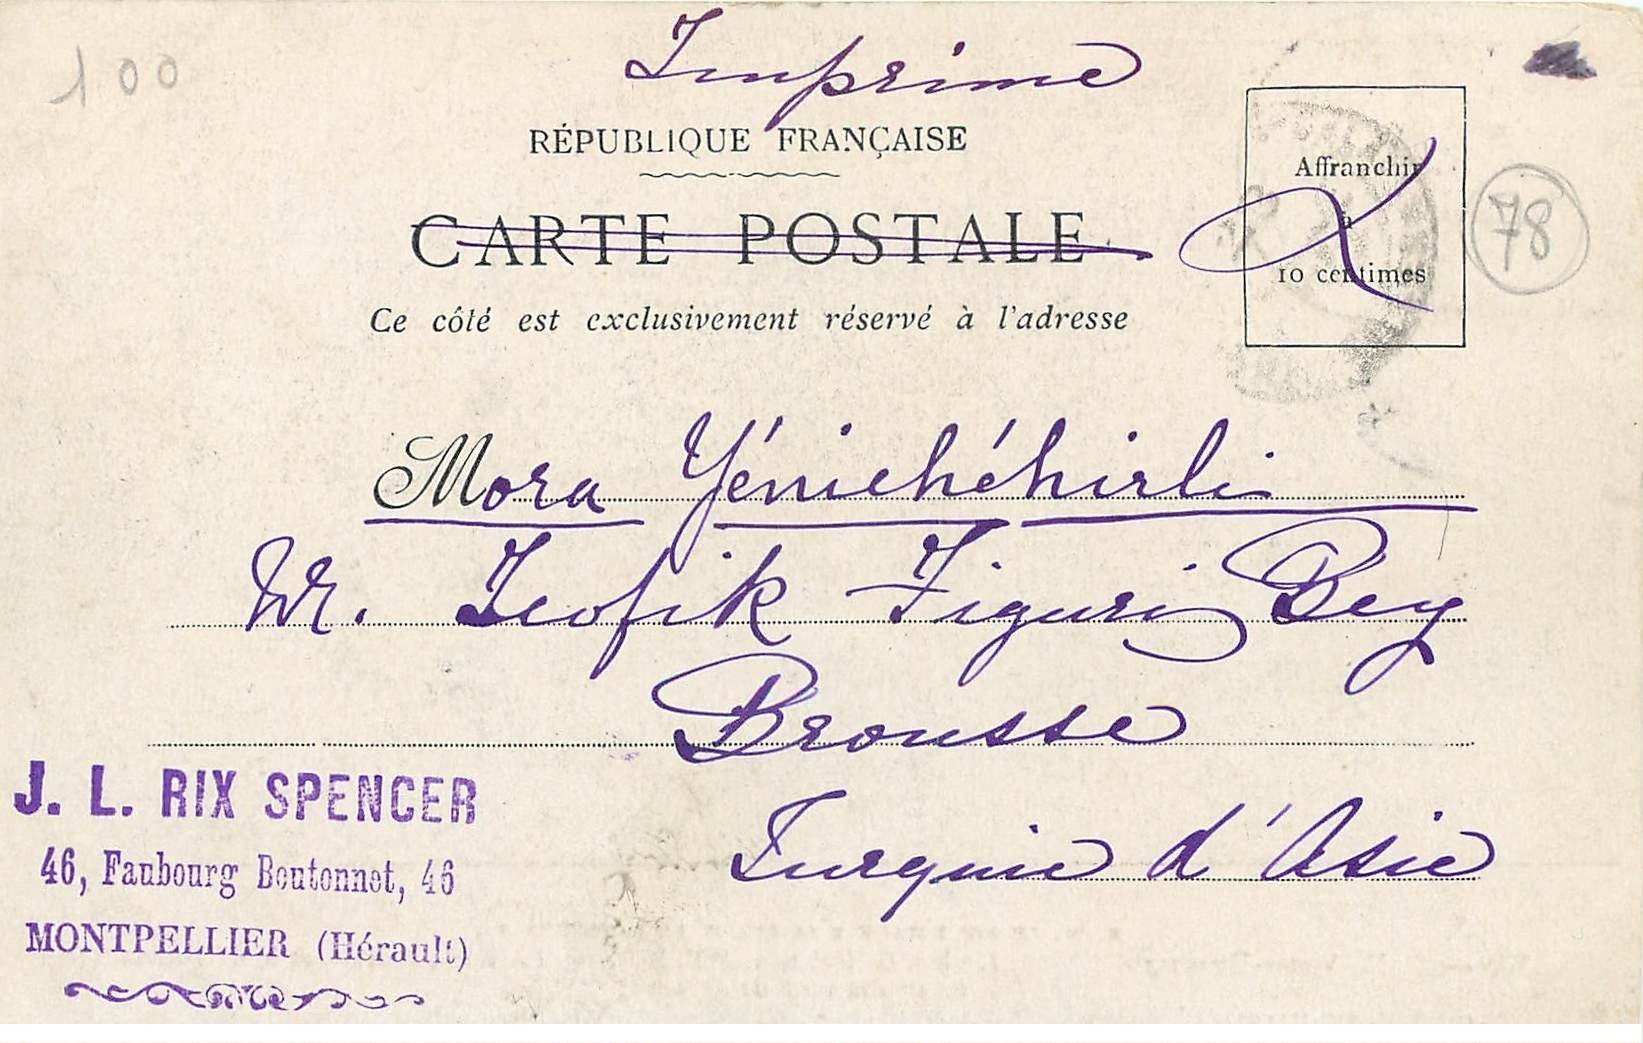 100
Imprime
RÉPUBLIQUE FRANÇAISE
CARTE POSTALE
Ce côté est exclusivement réservé à l'adresse
Affranchir
à
10 centimes
78
Mora Yénichéhirli
Mr. Teofik Figuri Bey
Brousse
Turquie d'Asie
J. L. RIX SPENCER
46, Faubourg Boutonnet, 46
MONTPELLIER (Hérault)